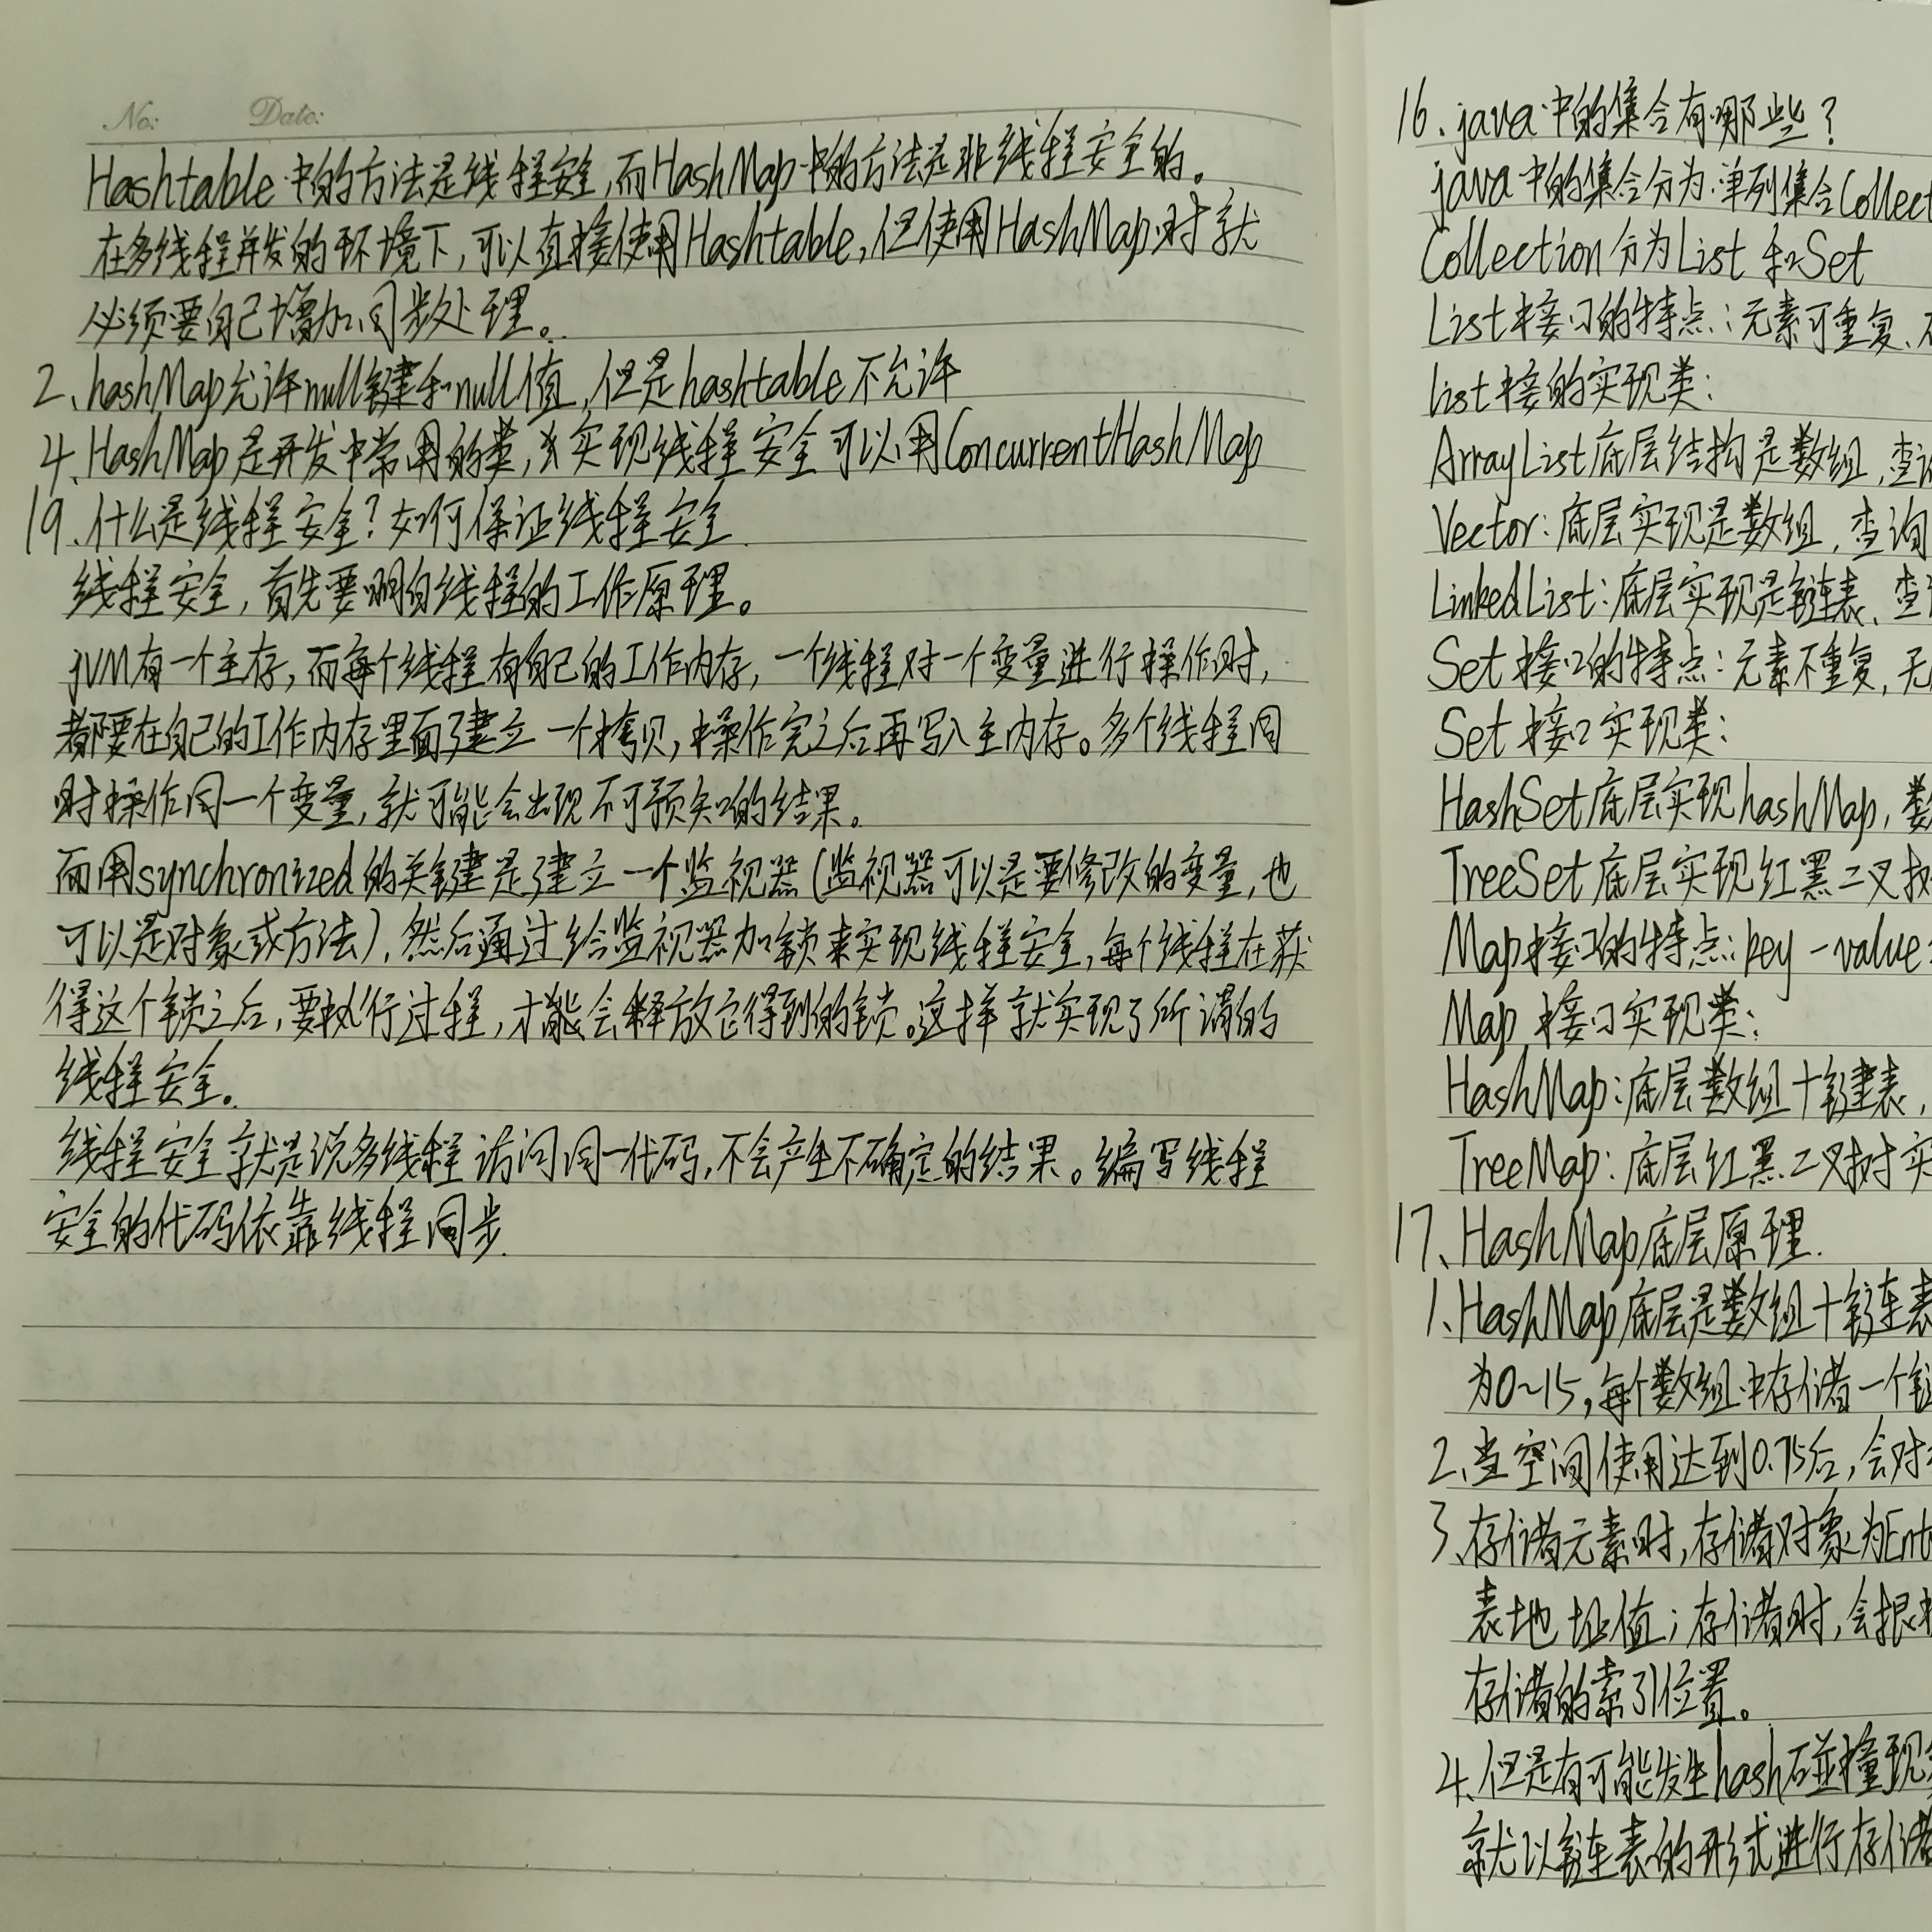 No: Date:
Hashtable中的方法是线程安全,而HashMap中的方法是非线程安全的。
在多线程并发的环境下,可以直接使用Hashtable,但使用HashMap时就
必须要自己增加同步处理。
2、hashMap允许null键和null值,但是hashtable不允许
4、HashMap是开发中常用的类,实现线程安全可以用ConcurrentHashMap
19、什么是线程安全?如何保证线程安全
线程安全,首先要明白线程的工作原理。
jVM有一个主存,而每个线程有自己的工作内存,一个线程对一个变量进行操作时,
都要在自己的工作内存里面建立一个拷贝,操作完之后再写入主内存。多个线程同
时操作同一个变量,就可能会出现不可预知的结果。
而用synchronized的关键是建立一个监视器(监视器可以是要修改的变量,也
可以是对象或方法),然后通过给监视器加锁来实现线程安全,每个线程在获
得这个锁之后,要执行过程,才能会释放它得到的锁。这样就实现了所谓的
线程安全。
线程安全就是说多线程访问同一代码,不会产生不确定的结果。编写线程
安全的代码依靠线程同步.
16、java中的集合有哪些?
java中的集合分为:单列集合Collect
Collection分为List和Set
List接口的特点:元素可重复、
list接的实现类:
ArrayList底层结构是数组,查
Vector:底层实现是数组,查询
LinkedList:底层实现是链表、查
Set接口的特点:元素不重复,无
Set接口实现类:
HashSet底层实现hashMap,数
TreeSet底层实现红黑二叉树
Map接口的特点:key-value
Map接口实现类:
HashMap:底层数组+链表,
TreeMap:底层红黑二叉树实
17、HashMap底层原理.
1、HashMap底层是数组+链表
为0~15,每个数组中存储一个链
2、当空间使用达到0.75后,会对
3、存储元素时,存储对象为Ent
表地址值;存储时,会根
存储的索引位置。
4、但是有可能发生hash碰撞现
就以链表的形式进行存储